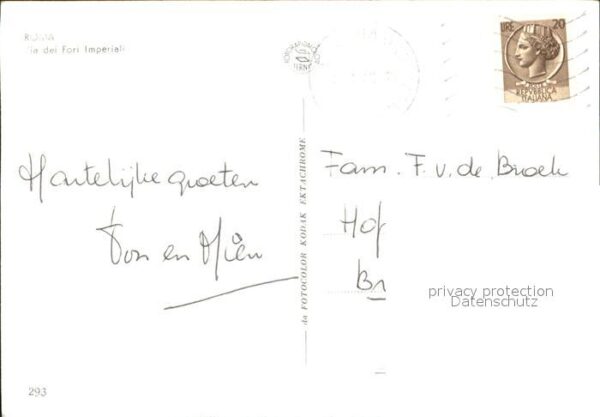 ROMA
Via dei Fori Imperiali
LIRE 20
REPVBBLICA
ITALIANA
Hartelijke groeten
Ton en Mien
Fam. F. v. de Broek
Hof
Br
privacy protection
Datenschutz
da FOTOCOLOR KODAK EKTACHROME
293